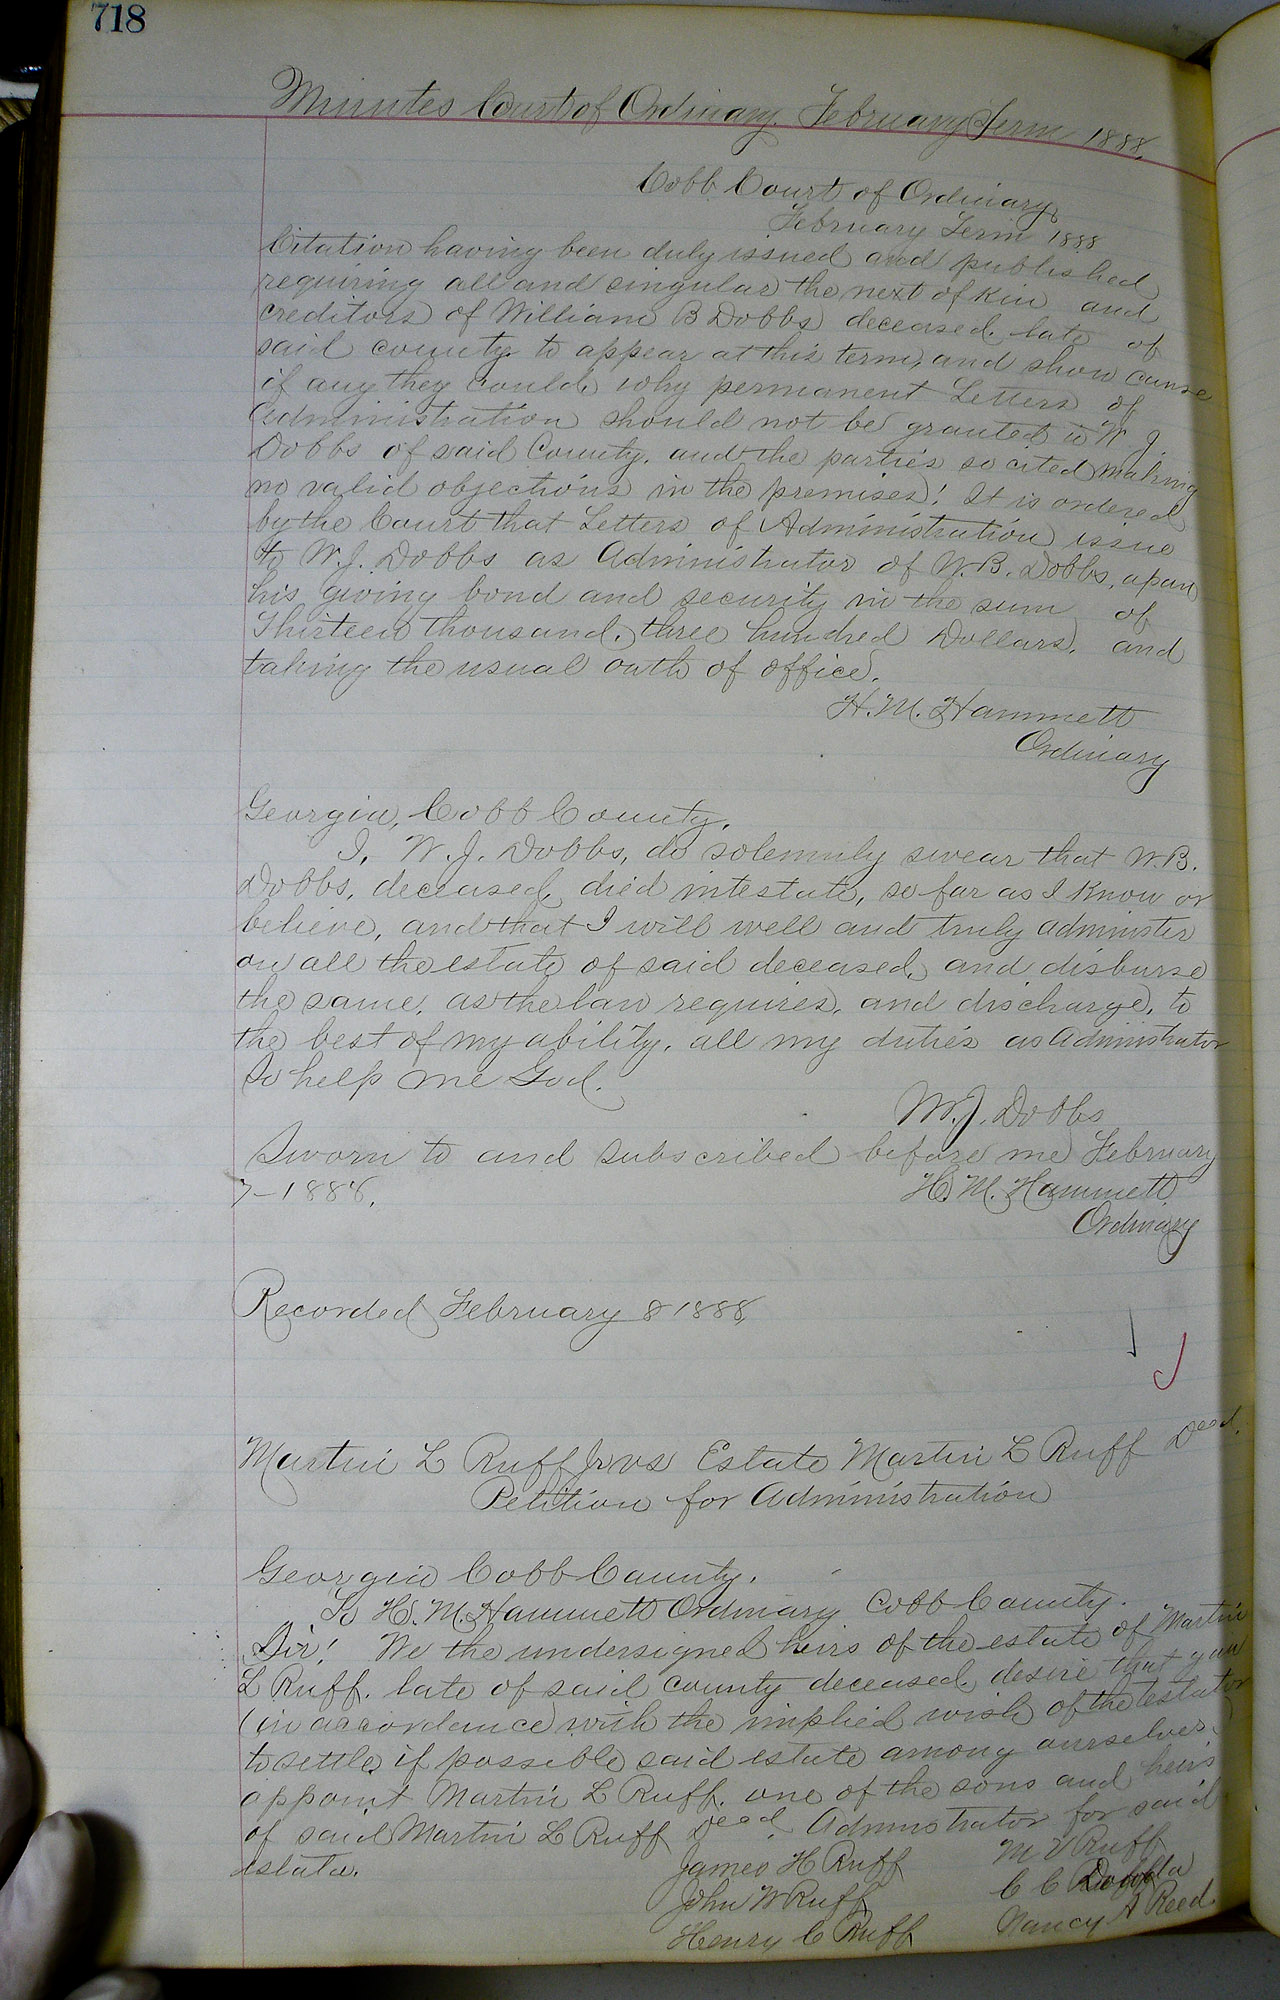 718
Minutes Court of Ordinary February Term 1888.
Cobb Court of Ordinary
February Term 1888
Citation having been duly issued and published
requiring all and singular the next of Kin and
creditors of William B Dobbs deceased. late of
said county to appear at this term, and show cause
if any they could, why permanent Letters of
Administration should not be granted to W J
Dobbs of said County. and the parties so cited making
no valid objections in the premises! It is ordered
by the Court that Letters of Administration issue
to W. J. Dobbs as Administrator of W. B. Dobbs, upon
his giving bond and security in the sum of
Thirteen thousand, three hundred Dollars. and
taking the usual oath of office.
H. M. Hammett
Ordinary
Georgia, Cobb County.
I, W. J. Dobbs, do solemnly swear that W. B.
Dobbs, deceased, died intestate, so far as I Know or
believe, and that I will well and truly administer
on all the estate of said deceased, and disburse
the same, as the law requires, and discharge, to
the best of my ability, all my duties as Administrator
So help me God.
W. J. Dobbs
Sworn to and subscribed before me February
7-1888.
H. M. Hammett
Ordinary
Recorded February 8 1888,
Martin L Ruff Jr vs Estate Martin L Ruff Decd.
Petition for Administration
Georgia Cobb County.
To H. M. Hammett Ordinary Cobb County.
Sir! We the undersigned heirs of the estate of Martin
L Ruff. late of said county deceased, desire that you
(in accordance with the implied wish of the testator
to settle if possible said estate among ourselves)
appoint Martin L Ruff. one of the sons and heirs
of said Martin L Ruff Decd. Administrator for said
estate.
James H Ruff
M V Ruff
John W Ruff
C C
Henry C Ruff
Nancy A Reed